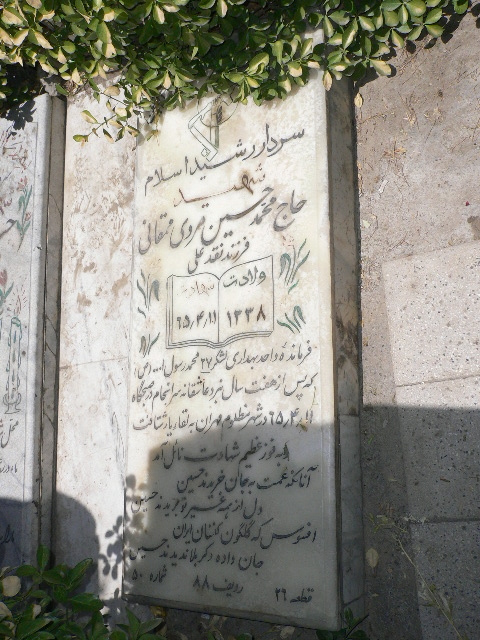 سردار رشید اسلام
شهید
حاج محمد حسین مروی ممقانی
فرزند نقد علی
ولادت شهادت
۱۳۳۸ ۶۵٫۴٫۱۱
فرمانده واحد بهداری لشگر ۲۷ محمد رسول الله (ص)
که پس از هفت سال نبرد عاشقانه سرانجام در صبحگاه
۶۵٫۴٫۱۱ در شهر مظلوم مهران به لقاء یار شتافت
به فوز عظیم شهادت نائل آمد
آنانکه غمت به جان خریدند حسین
دل از همه غیر تو بریدند حسین
افسوس که گلگون کفنان ایران
جان داده و کربلا ندیدند حسین
قطعه ۲۶ ردیف ۸۸ شماره ۵۰